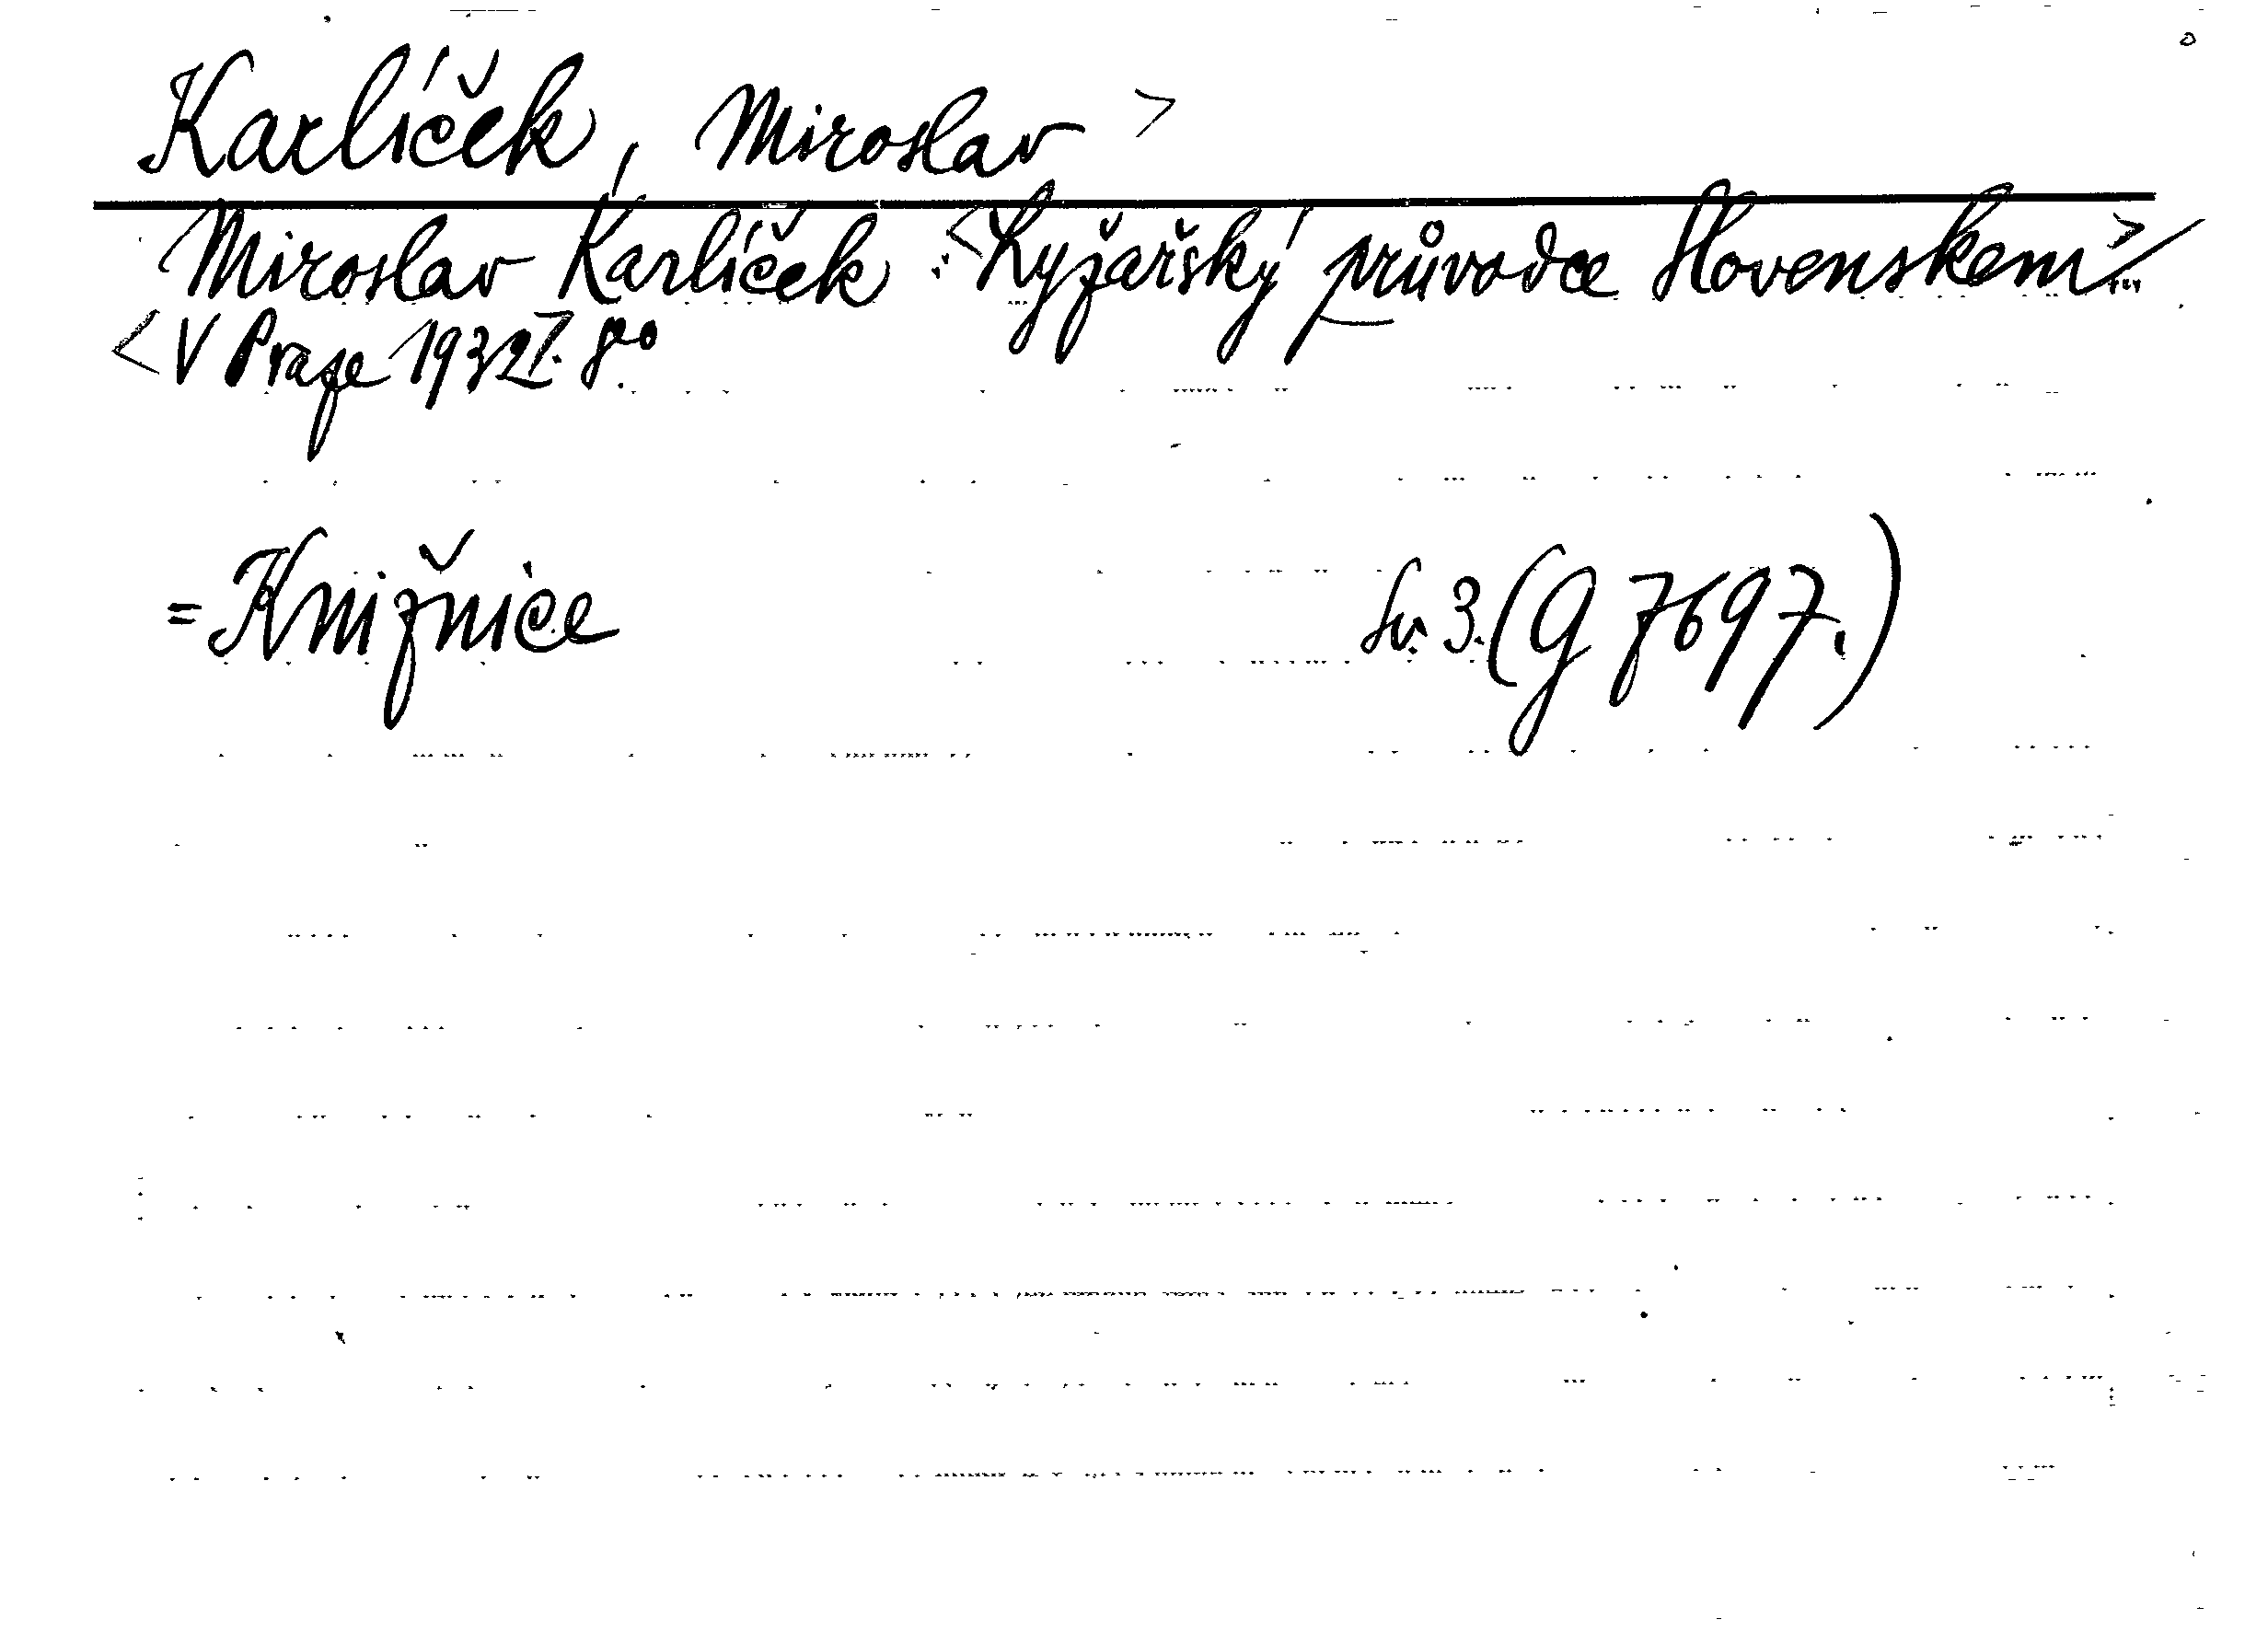 Karlíček, Miroslav >
Miroslav Karlíček : <Lyžařský průvodce Slovenskem>/
<V Praze 1932]. 8°.
= Knižnice Sv. 3. (G 7697.)